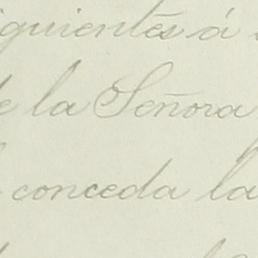 siguientes á
de la Señora
conceda la